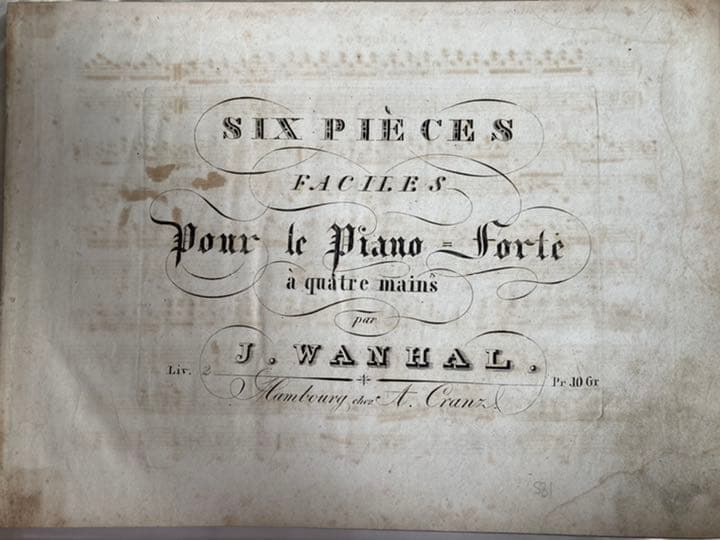 SIX PIÈCES
FACILES
Pour le Piano=Forte
à quatre mains
par
J. WANHAL.
Liv. 2 Pr. 10 Gr
Hambourg chez A. Cranz.
581